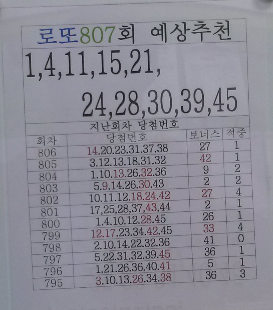 로또807회 예상추천
1,4,11,15,21,
24,28,30,39,45
지난회차 당첨번호
회차 당첨번호 보너스 적중
806 14.20.23.31.37.38 27 1
805 3.12.13.18.31.32 42 1
804 1.10.13.26.32.36 9 2
803 5.9.14.26.30.43 2 2
802 10.11.12.18.24.42 27 4
801 17.25.28.37.43.44 2 1
800 1.4.10.12.28.45 26 1
799 12.17.23.34.42.45 33 4
798 2.10.14.22.32.36 41 0
797 5.22.31.32.39.45 36 1
796 1.21.26.36.40.41 5 1
795 3.10.13.26.34.38 36 3